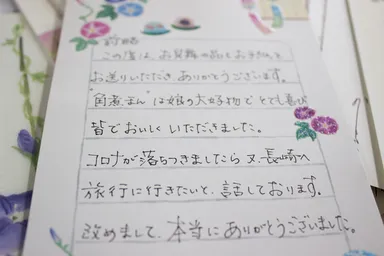 前略
この度は、お見舞の品とお手紙を
お送りいただき ありがとうございます。
"角煮まん"は娘の大好物で とても喜び
皆でおいしく いただきました。
コロナが落ちつきましたら 又、長崎へ
旅行に行きたいと、話しております。
改めまして、本当に ありがとうございました。